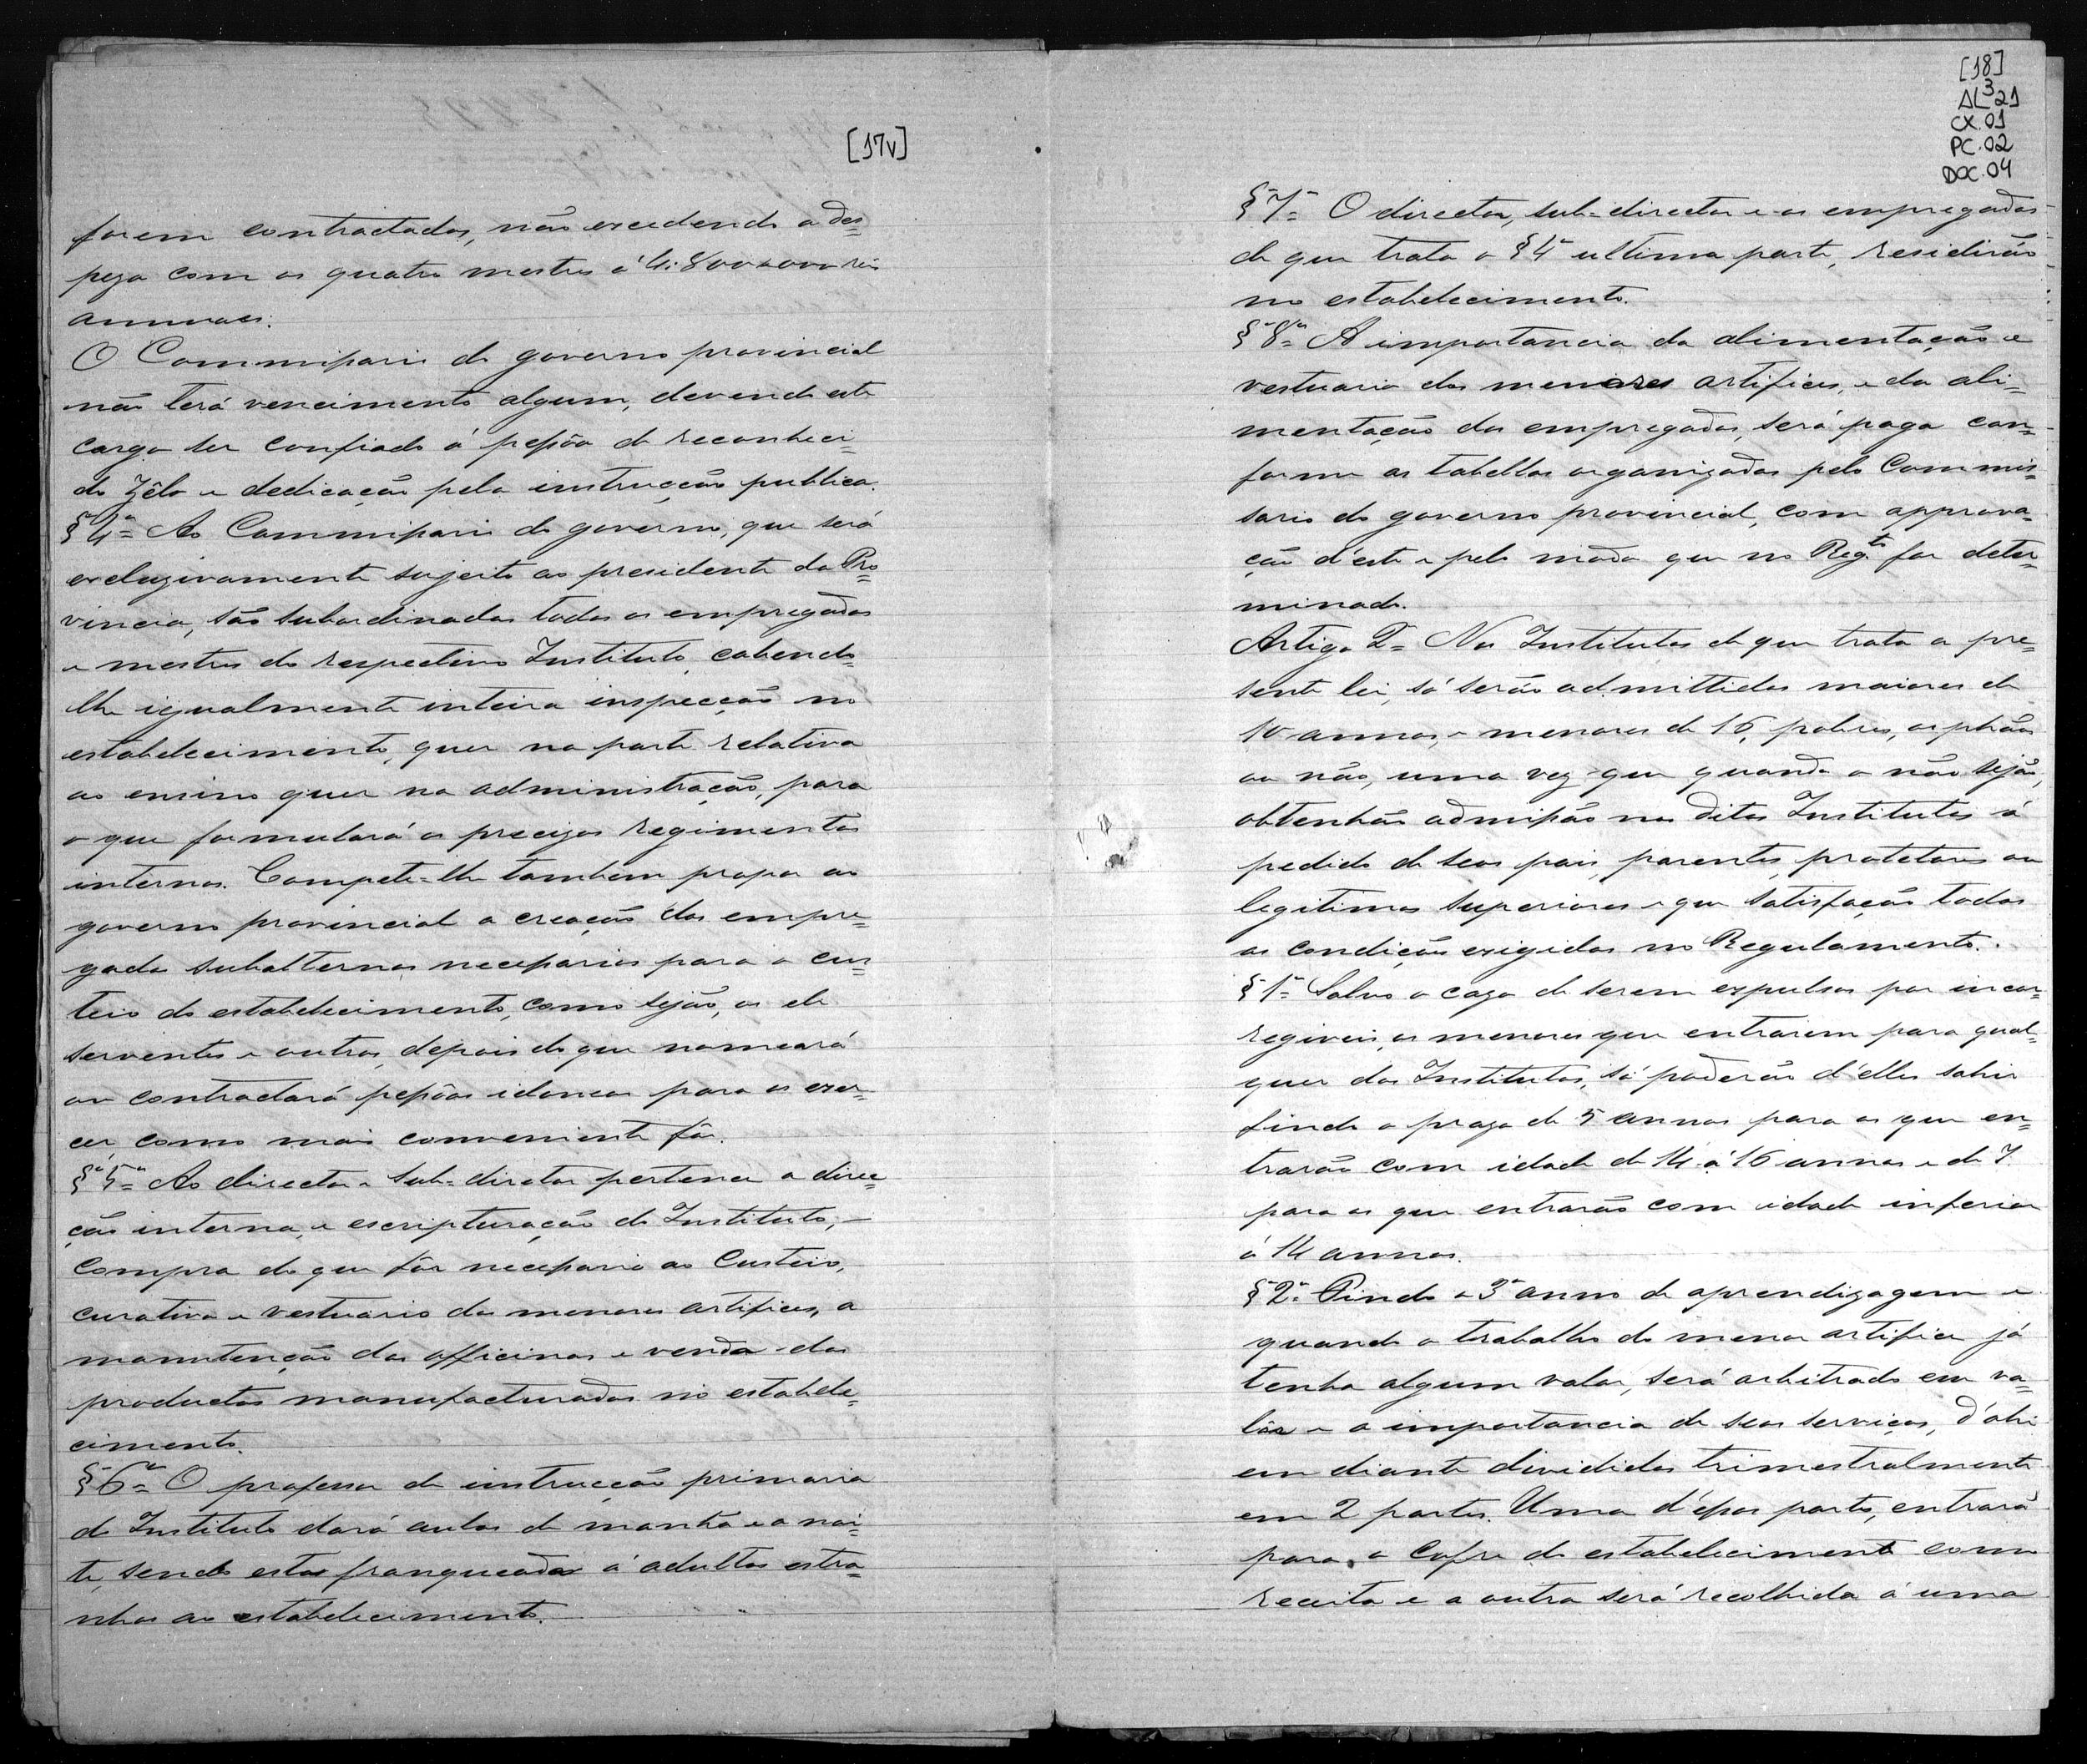 [17v]
forem contractados, não excedendo a des=
peza com os quatro mestres á 4:800$000 reis
annuaes.
O Commissario do governo provincial
não terá vencimento algum, devendo este
cargo ser confiado á pessôa de reconheci=
do zêlo e dedicação pela instrucção publica.
§ 4º= Ao Commissario do governo, que será
exclusivamente sujeito ao presidente da Pro=
vincia, são subordinados todos os empregados
e mestres do respectivo Instituto, cabendo=
lhe igualmente inteira inspecção no
estabelecimento, quer na parte relativa
ao ensino quer na administração, para
o que formulará os precizos regimentos
internos. Compete=lhe tambem propor ao
governo provincial a creação dos empre=
gados subalternos necessarios para o cus=
teio do estabelecimento, como sejão, os de
serventes e outros, depois do que nomeará
ou contractará pessôas idoneas para os exer=
cer, como mais conveniente fôr.
§ 5º= Ao director e sub=diretor pertence a direc=
ção interna, e escripturação do Instituto,
compra do que fôr necessario ao Custeio,
curativo e vestuario dos menores artifices, a
manutenção das officinas e venda dos
productos manufacturados no estabele=
cimento.
§ 6º= O professor de instrucção primaria
do Instituto dará aulas de manhã e a noi=
te, sendo estas franqueadas á adultos estra=
nhos ao estabelecimento.
[18]
AL 3 21
CX.01
PC.02
DOC.04
§ 7º= O director, sub=director e os empregados
de que trata o § 4º ultima parte, residirão
no estabelecimento.
§ 8º= A importancia da alimentação e
vestuario dos menores artifices, e da ali=
mentação dos empregados, será paga con=
forme as tabellas organizadas pelo Commis=
sario do governo provincial, com approva=
ção d'este e pelo modo que no Regto for deter=
minado.
Artigo 2= Nos Institutos de que trata a pre=
sente lei, só serão admittidos maiores de
10 annos, e menores de 16, pobres, orphãos
ou não, uma vez que quando o não sejão,
obtenhão admissão nos ditos Institutos á
pedido de seos pais, parentes, protetores ou
legitimos superiores e que satisfação todas
as condições exigidas no Regulamento.
§ 1º= Salvo o cazo de serem expulsos por incor=
regiveis, os menores que entrarem para qual=
quer dos Institutos, só poderão d'elles sahir
findo o prazo de 5 annos para os que en=
trarão com idade de 14 á 16 annos e de 7
para os que entrarão com idade inferior
á 14 annos.
§ 2º= Findo o 3º anno de aprendizagem e
quando o trabalho do menor artifice já
tenha algum valor, será arbitrado em va=
lôr e a importancia de seos serviços, d'ahi
em diante divididos trimestralmente
em 2 partes. Uma d'essas partes, entrará
para o Cofre do estabelecimento como
receita e a outra será recolhida á uma